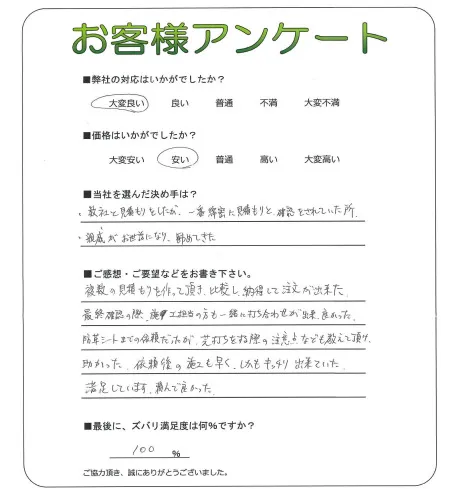 お客様アンケート
■弊社の対応はいかがでしたか？
大変良い 良い 普通 不満 大変不満
■価格はいかがでしたか？
大変安い 安い 普通 高い 大変高い
■当社を選んだ決め手は？
・数社と見積もりをしたが、一番綿密に見積もりと確認をされていた所。
・親戚がお世話になり、勧めてきた
■ご感想・ご要望などをお書き下さい。
複数の見積もりを作って頂き、比較し、納得して注文が出来た。
最終確認の際、施工担当の方も一緒に打ち合わせが出来、良かった。
防草シートまでの依頼だったが、芝打ちをする際の注意点なども教えて頂け、
助かった。依頼後の施工も早く、しかもキッチリ出来ていた。
満足しています。頼んで良かった。
■最後に、ズバリ満足度は何％ですか？
100 ％
ご協力頂き、誠にありがとうございました。